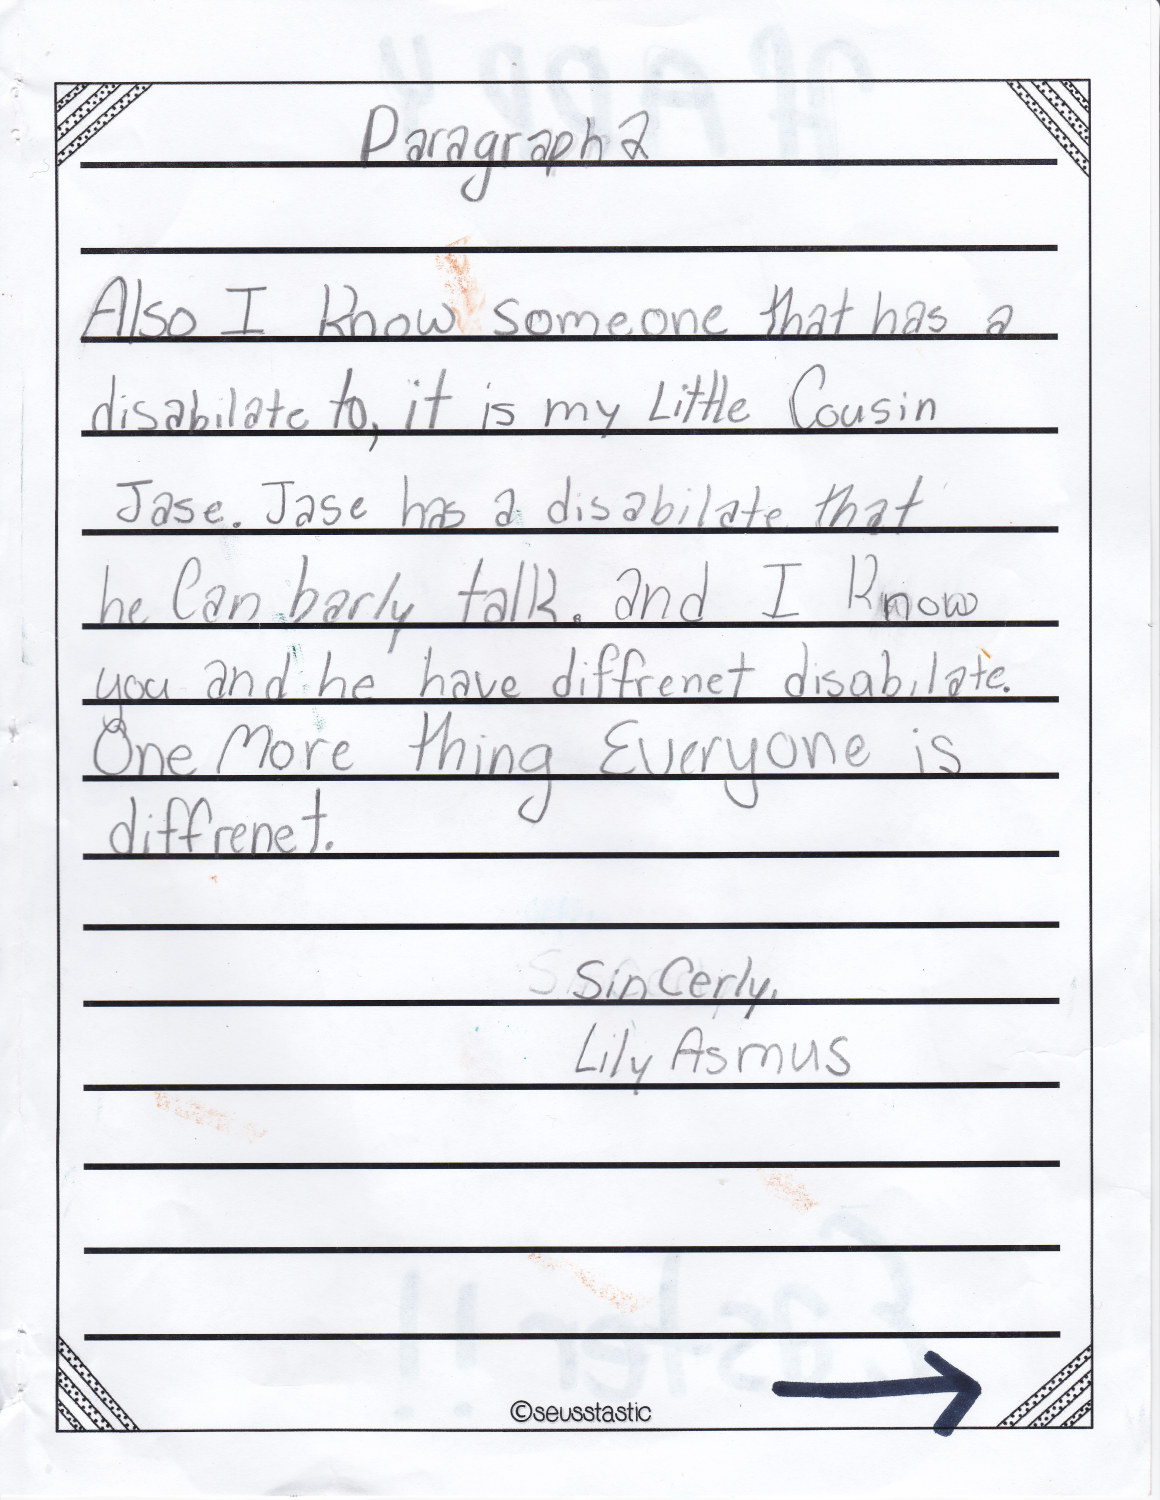 Paragraph 2
Also I Know someone that has a
disabilate to, it is my Little Cousin
Jase. Jase has a disabilate that
he Can barly talk. and I Know
you and he have diffrenet disabilate.
One More thing Everyone is
diffrenet.
SinCerly,
Lily Asmus
©seusstastic